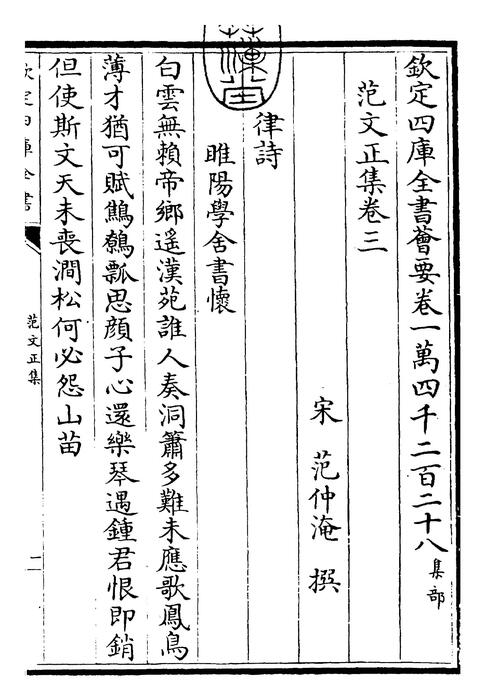 欽定四庫全書薈要卷一萬四千二百二十八集部
范文正集卷三
宋 范仲淹 撰
律詩
睢陽學舍書懷
白雲無賴帝鄉遥漢苑誰人奏洞簫多難未應歌鳳鳥
薄才猶可賦鷦鷯瓢思顔子心還樂琴遇鍾君恨即銷
但使斯文天未喪澗松何必怨山苗
欽定四庫全書
范文正集